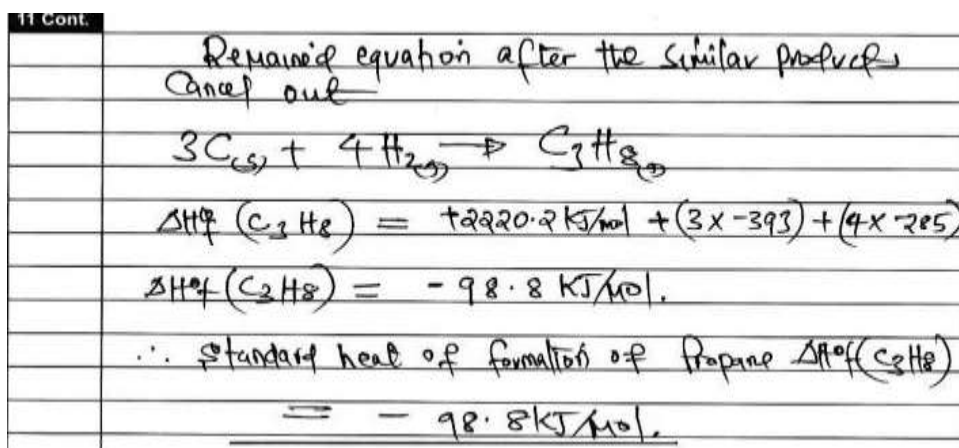 11 Cont.
Remained equation after the similar products
Cancel out
3C(s) + 4H2(g) → C3H8(g)
ΔH°f (C3H8) = +2220.2 KJ/mol + (3 x -393) + (4 x -285)
ΔH°f (C3H8) = - 98.8 KJ/mol.
∴ Standard heat of formation of Propane ΔH°f (C3H8)
= - 98.8KJ/mol.